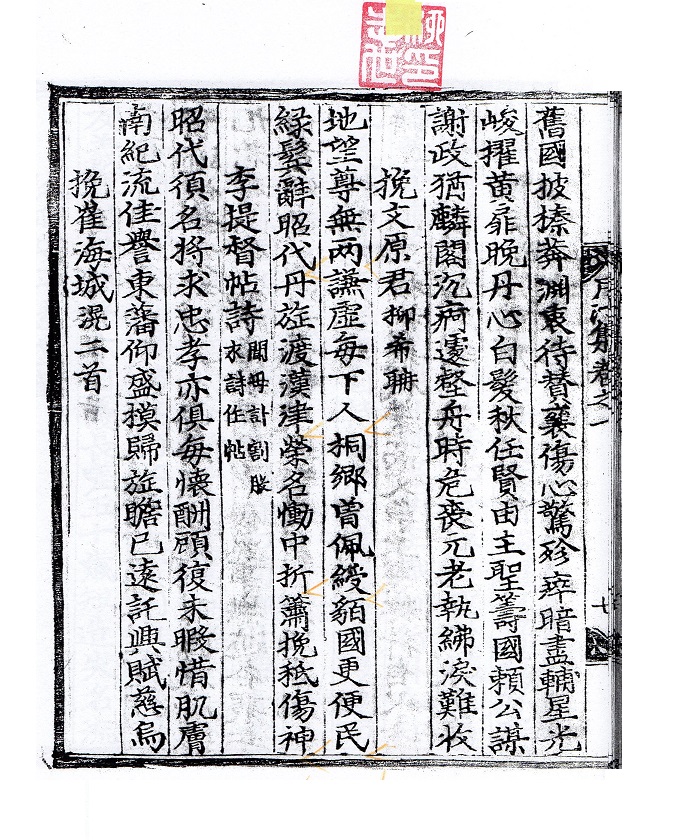 月汀集卷之一 七
舊國披榛莽淵衷待贊襄傷心驚殄瘁暗盡輔星光
峻擢黃扉晚丹心白髮秋任賢由主聖籌國賴公謀
謝政猶麟閣沉痾遽壑舟時危喪元老執紼淚難收
挽文原君柳希聃
地望尊無兩謙虛每下人桐鄉曾佩綬貊國更便民
綠鬂辭昭代丹旌渡漢津榮名慟中折簫挽秪傷神
李提督帖詩 聞母訃割股
求詩作帖
昭代須名將求忠孝亦俱每懷酬顧復未暇惜肌膚
南紀流佳譽東藩仰盛摸歸旌瞻已遠託興賦慈烏
挽崔海城滉二首